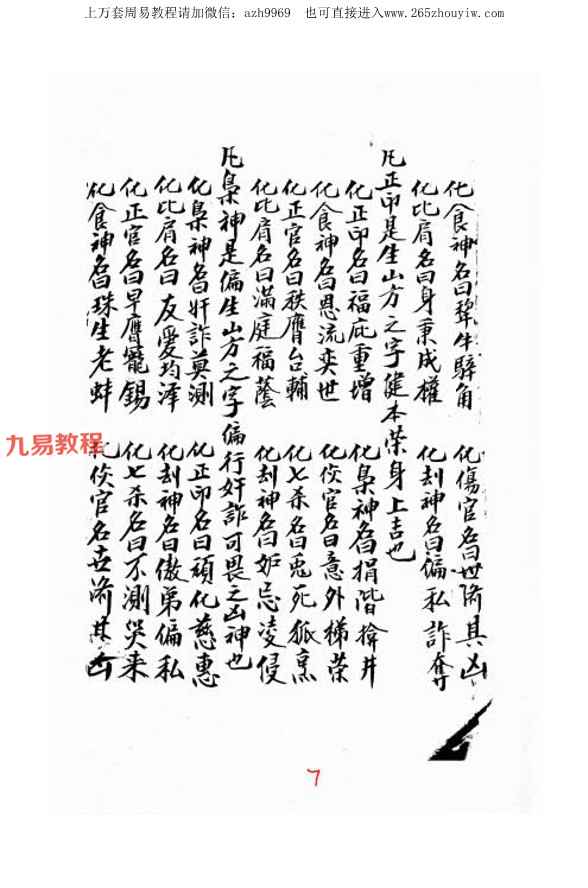 上万套周易教程请加微信：azh9969 也可直接进入www.265zhouyiw.com
化食神名曰犂牛騂角 化傷官名曰世濟其凶
化比肩名曰身秉成權 化刦神名曰偏私詐奪
凡正印是生山方之字健本荣身上吉也
化正印名曰福庇重增 化梟神名曰捐階揜井
化食神名曰恩流奕世 化傷官名曰意外梯荣
化正官名曰秩膺台輔 化七杀名曰兎死狐烹
化比肩名曰滿庭福蔭 化刦神名曰妒忌凌侵
凡梟神是偏生山方之字偏行奸詐可畏之凶神也
化梟神名曰奸詐莫測 化正印名曰頑化慈惠
化比肩名曰友愛均泽 化刦神名曰傲弟偏私
化正官名曰早膺寵锡 化七杀名曰不測哭来
化食神名曰珠生老蚌 化傷官名曰世濟其凶
九易教程
7